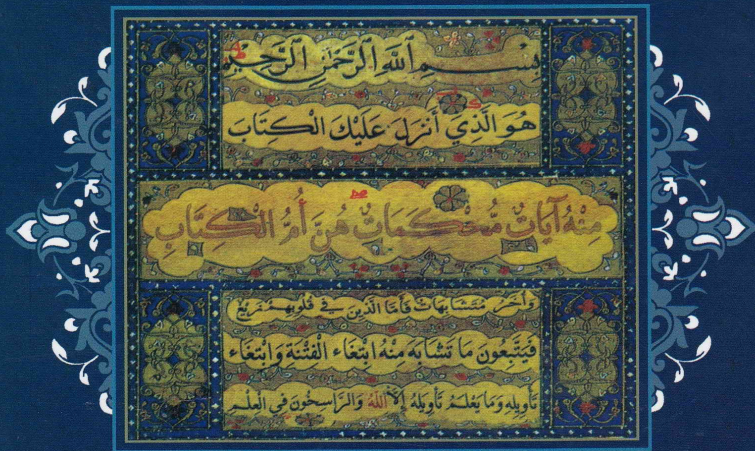 بِسْمِ ٱللَّهِ ٱلرَّحْمَٰنِ ٱلرَّحِيمِ
هُوَ الَّذِي أَنْزَلَ عَلَيْكَ الْكِتَابَ
مِنْهُ آيَاتٌ مُحْكَمَاتٌ هُنَّ أُمُّ الْكِتَابِ
وَأُخَرُ مُتَشَابِهَاتٌ فَأَمَّا الَّذِينَ فِي قُلُوبِهِمْ زَيْغٌ
فَيَتَّبِعُونَ مَا تَشَابَهَ مِنْهُ ابْتِغَاءَ الْفِتْنَةِ وَابْتِغَاءَ
تَأْوِيلِهِ وَمَا يَعْلَمُ تَأْوِيلَهُ إِلَّا اللَّهُ وَالرَّاسِخُونَ فِي الْعِلْمِ